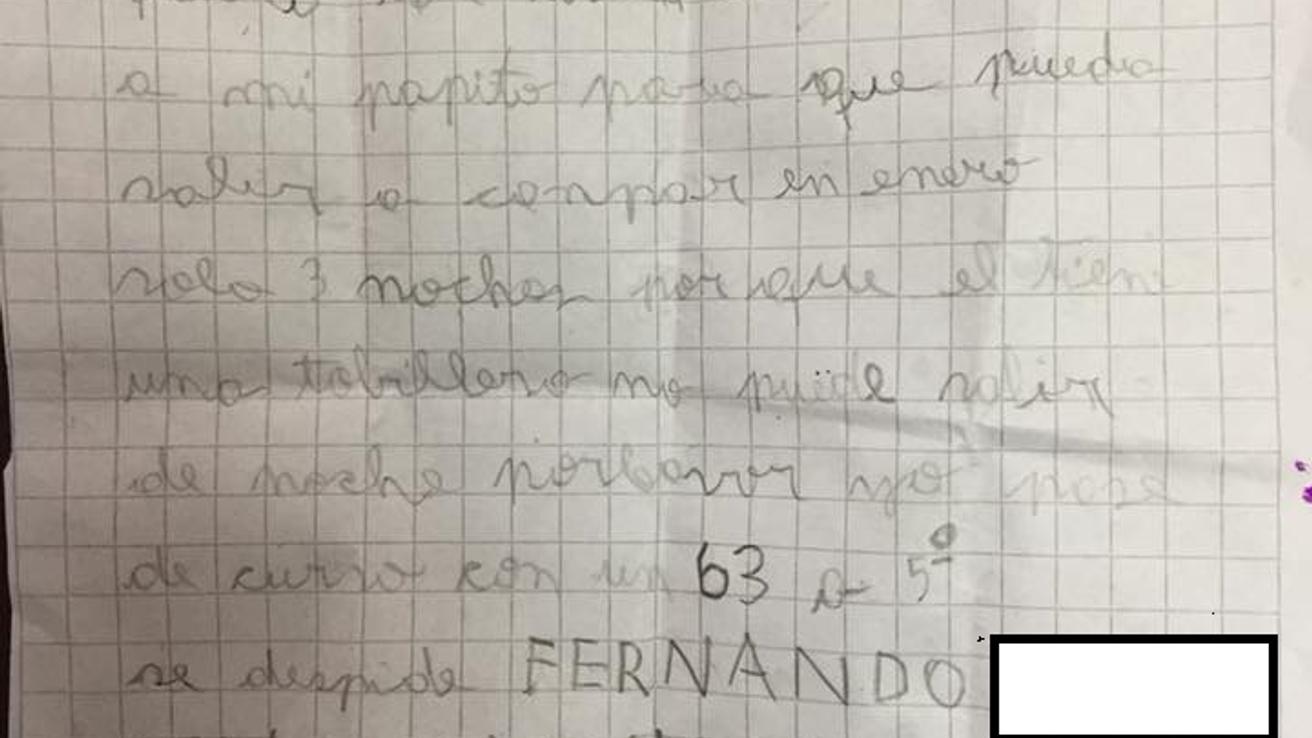 a mi papito para que pueda
salir a compar en enero
solo 3 noches por que el tien
una tobillera no puede salir
de noche porfavor yo pase
de curso con un 63 a 5º
se despide FERNANDO